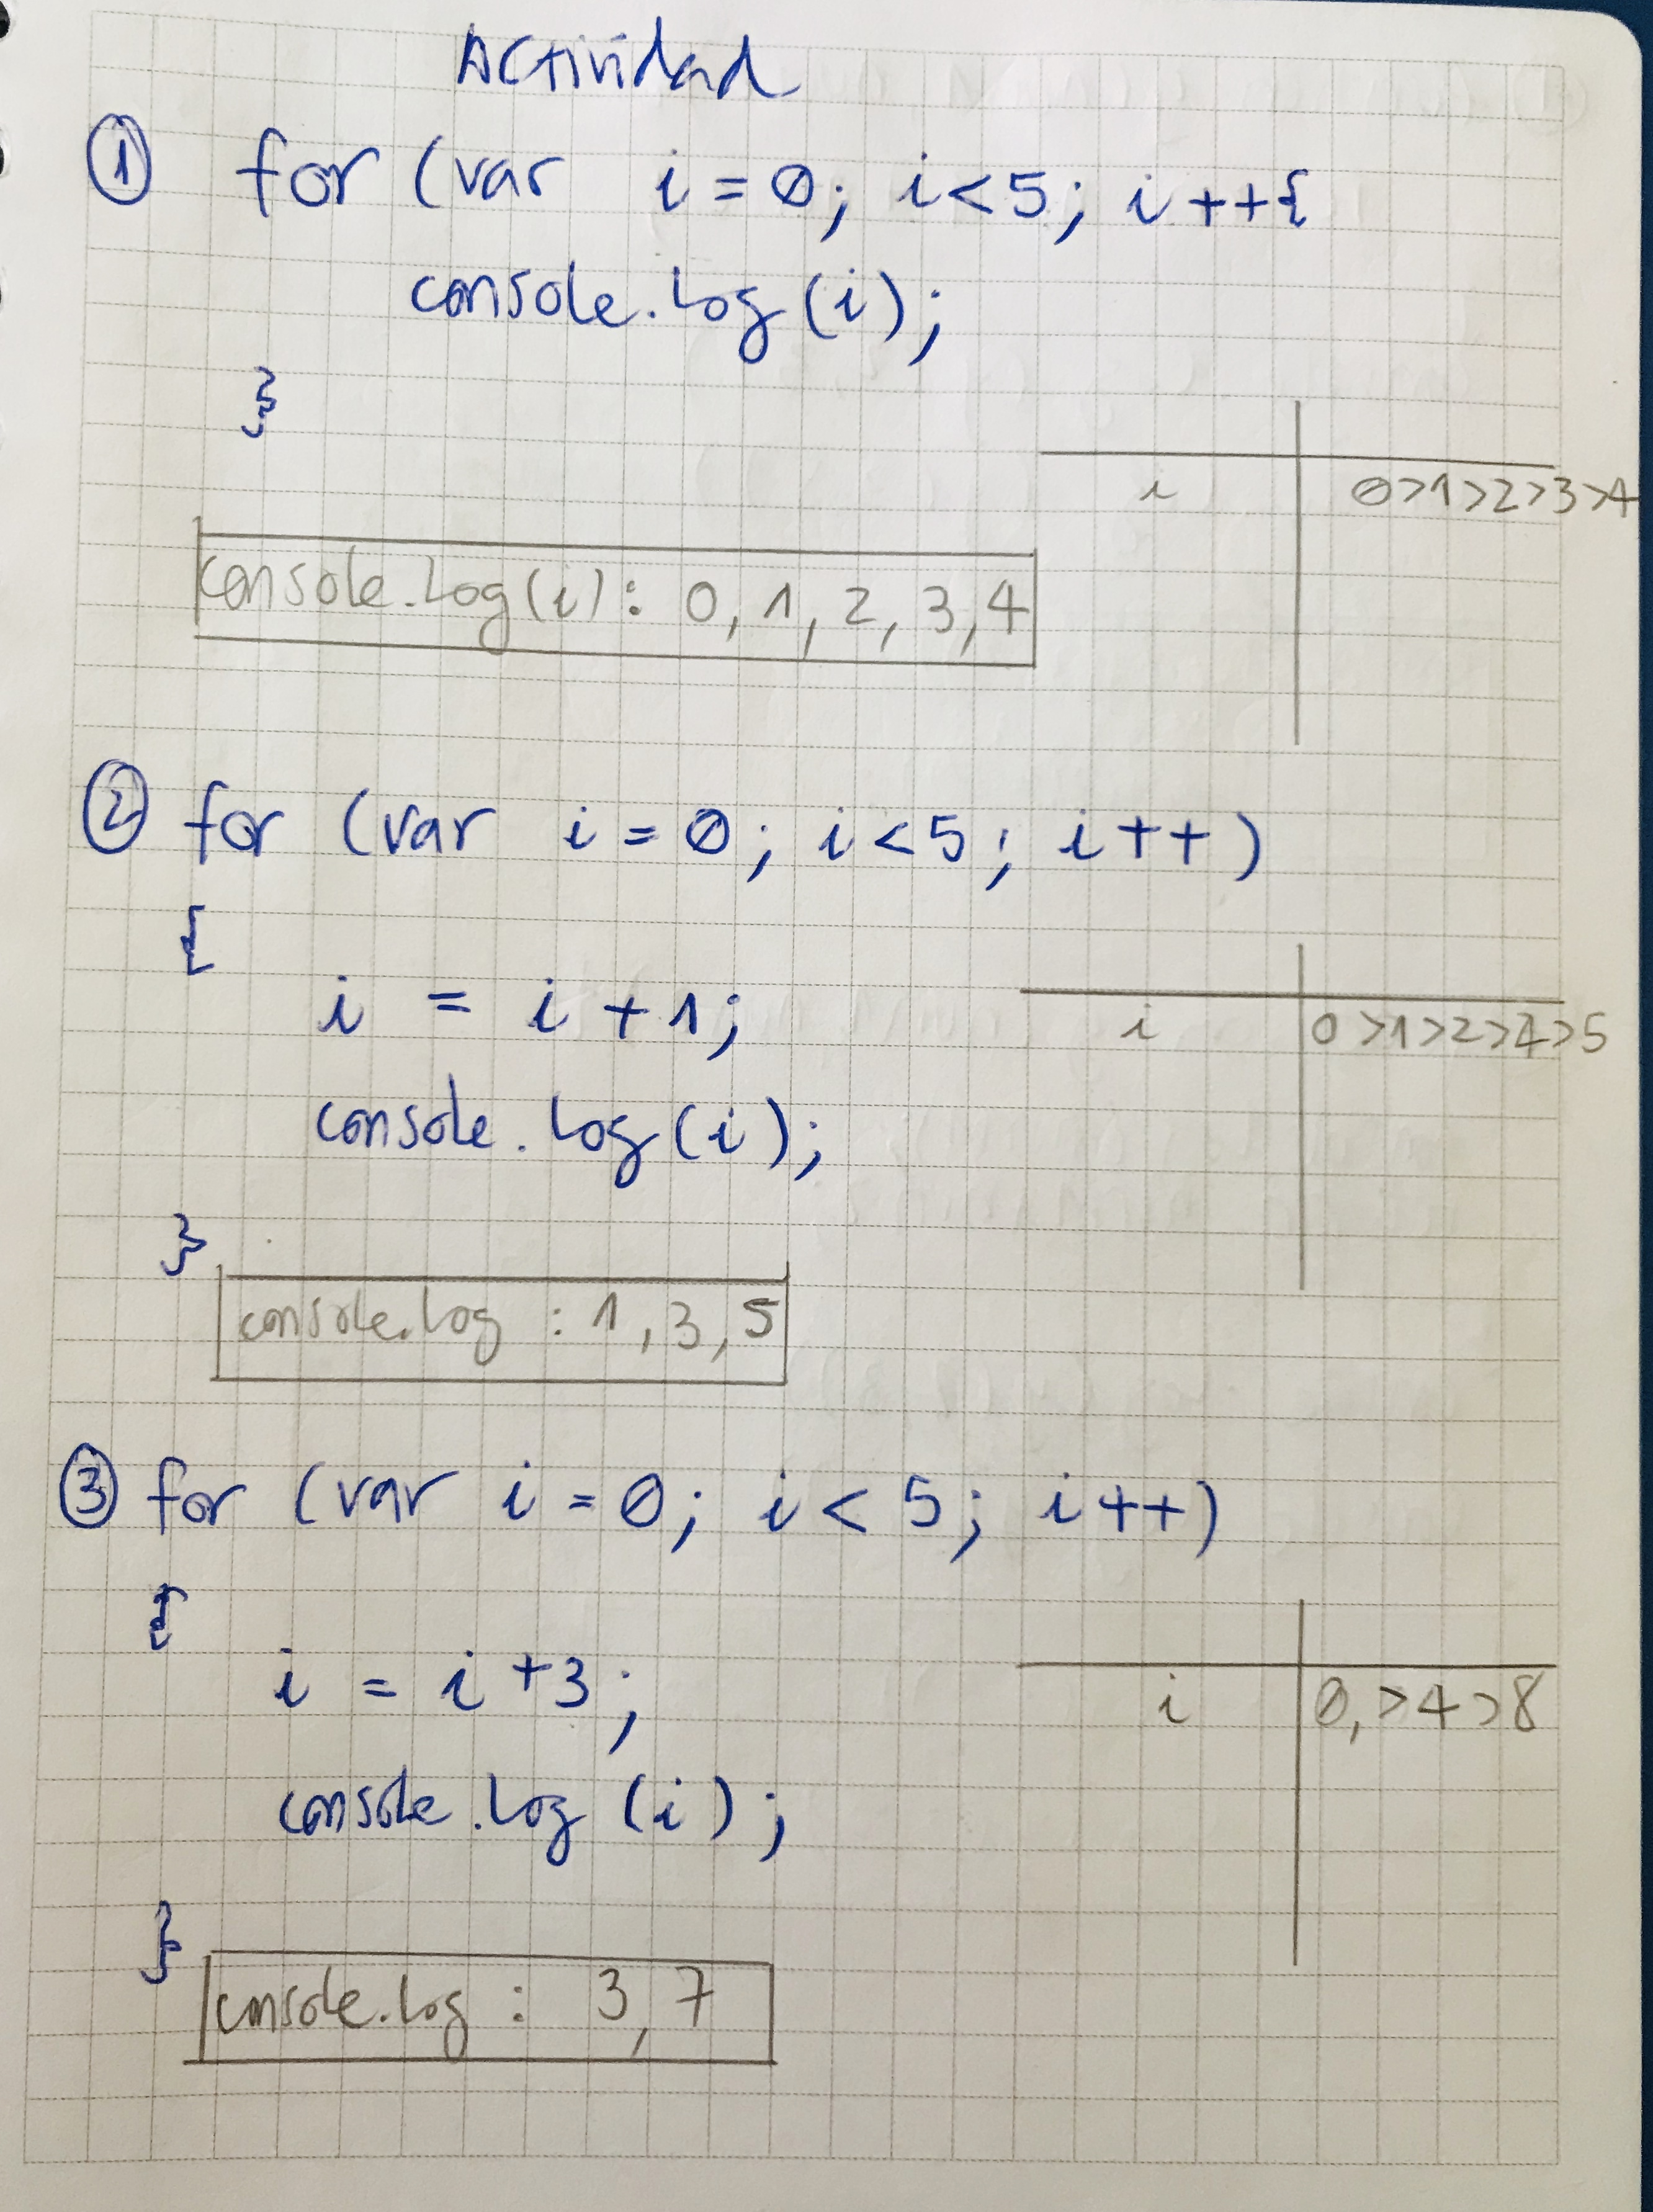 Actividad
① for (var i=0; i<5; i++{
console.log(i);
}
i 0>1>2>3>4
console.log(i): 0, 1, 2, 3, 4
② for (var i=0; i<5; i++)
{
i = i+1;
i 0>1>2>4>5
console.log(i);
}
console.log : 1, 3, 5
③ for (var i=0; i<5; i++)
{
i = i+3;
i 0,>4>8
console.log (i);
}
console.log : 3, 7